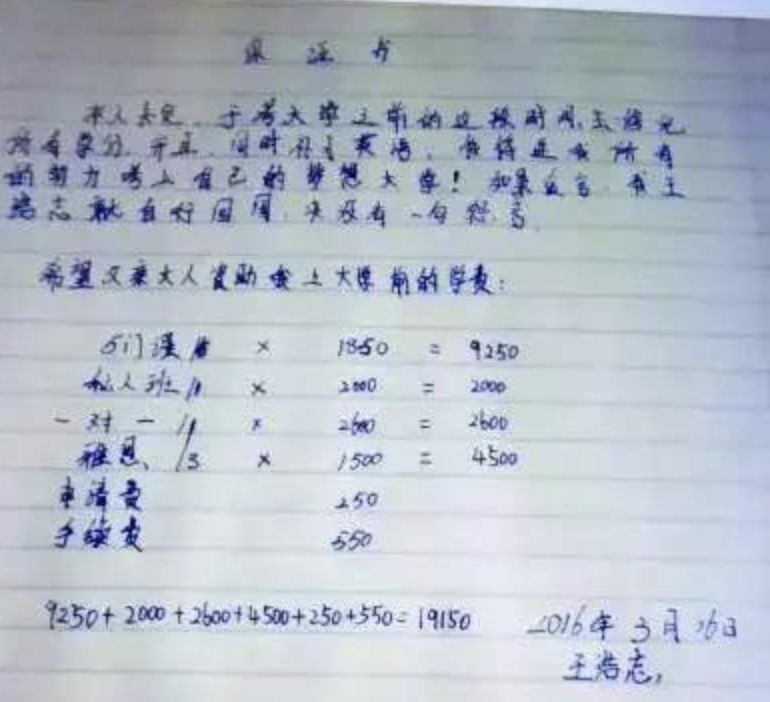 保证书
本人去完.于考大学之前的这段时间,去修完
所有学分.并且.同时补习英语.我将是我所有
的努力考上自己的梦想大学!如果 我王
浩志就自行回国.决没有一句怨言
希望父亲大人资助我上大学前的学费:
5门课 × 1850 = 9250
私人班/1 × 2000 = 2000
一对一/1 × 2600 = 2600
雅思、/3 × 1500 = 4500
申请费 250
手续费 550
9250+2000+2600+4500+250+550=19150
2016年3月26日
王浩志,